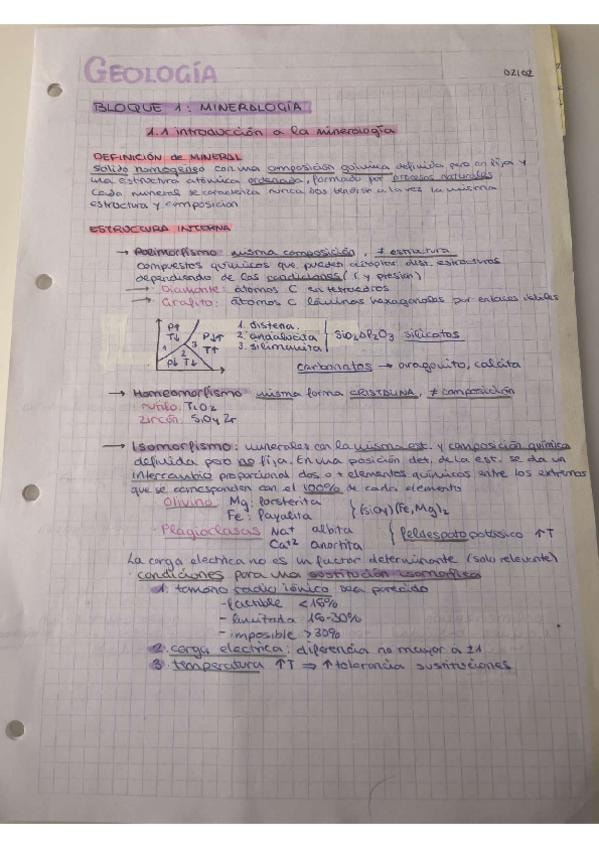 GEOLOGÍA
02/02
BLOQUE 1: MINERALOGÍA
1.1 introducción a la mineralogía
DEFINICIÓN de MINERAL
Sólido homogéneo con una composición química definida pero no fija y
una estructura atómica ordenada, formado por procesos naturales
Cada mineral se caracteriza nunca dos tendrán a la vez la misma
estructura y composición
ESTRUCTURA INTERNA
→ Polimorfismo: misma composición, ≠ estructura
compuestos químicos que pueden adoptar dist. estructuras
dependiendo de las condiciones (T y presión)
→ Diamante: átomos C en tetraedros
→ Grafito: átomos C láminas hexagonales por enlaces débiles
P↑
T↓
P↓↑
T↑
P↓
T↓
1
2
3
1. distena
2. andalucita
3. silimanita
silicatos
carbonatos → aragonito, calcita
→ Homeomorfismo misma forma CRISTALINA, ≠ composición
rutilo: TiO2
zircón: SiO4 Zr
→ Isomorfismo: minerales con la misma est. y composición química
definida pero no fija. En una posición det. de la est. se da un
intercambio proporcional dos o + elementos químicos entre los extremos
que se corresponden con el 100% de cada elemento
Olivino Mg: forsterita
Fe: fayalita
(SiO4)(Fe,Mg)2
Plagioclasas Na+ albita
Ca+2 anortita
feldespato potásico ↑T
La carga electrica no es un factor determinante (solo relevante)
condiciones para una sustitución isomorfica
1. tamaño radio iónico sea parecido
- factible <15%
- limitada 15-30%
- imposible >30%
2. carga electrica: diferencia no mayor a ±1
3. temperatura ↑T ⇒ ↑tolerancia sustituciones